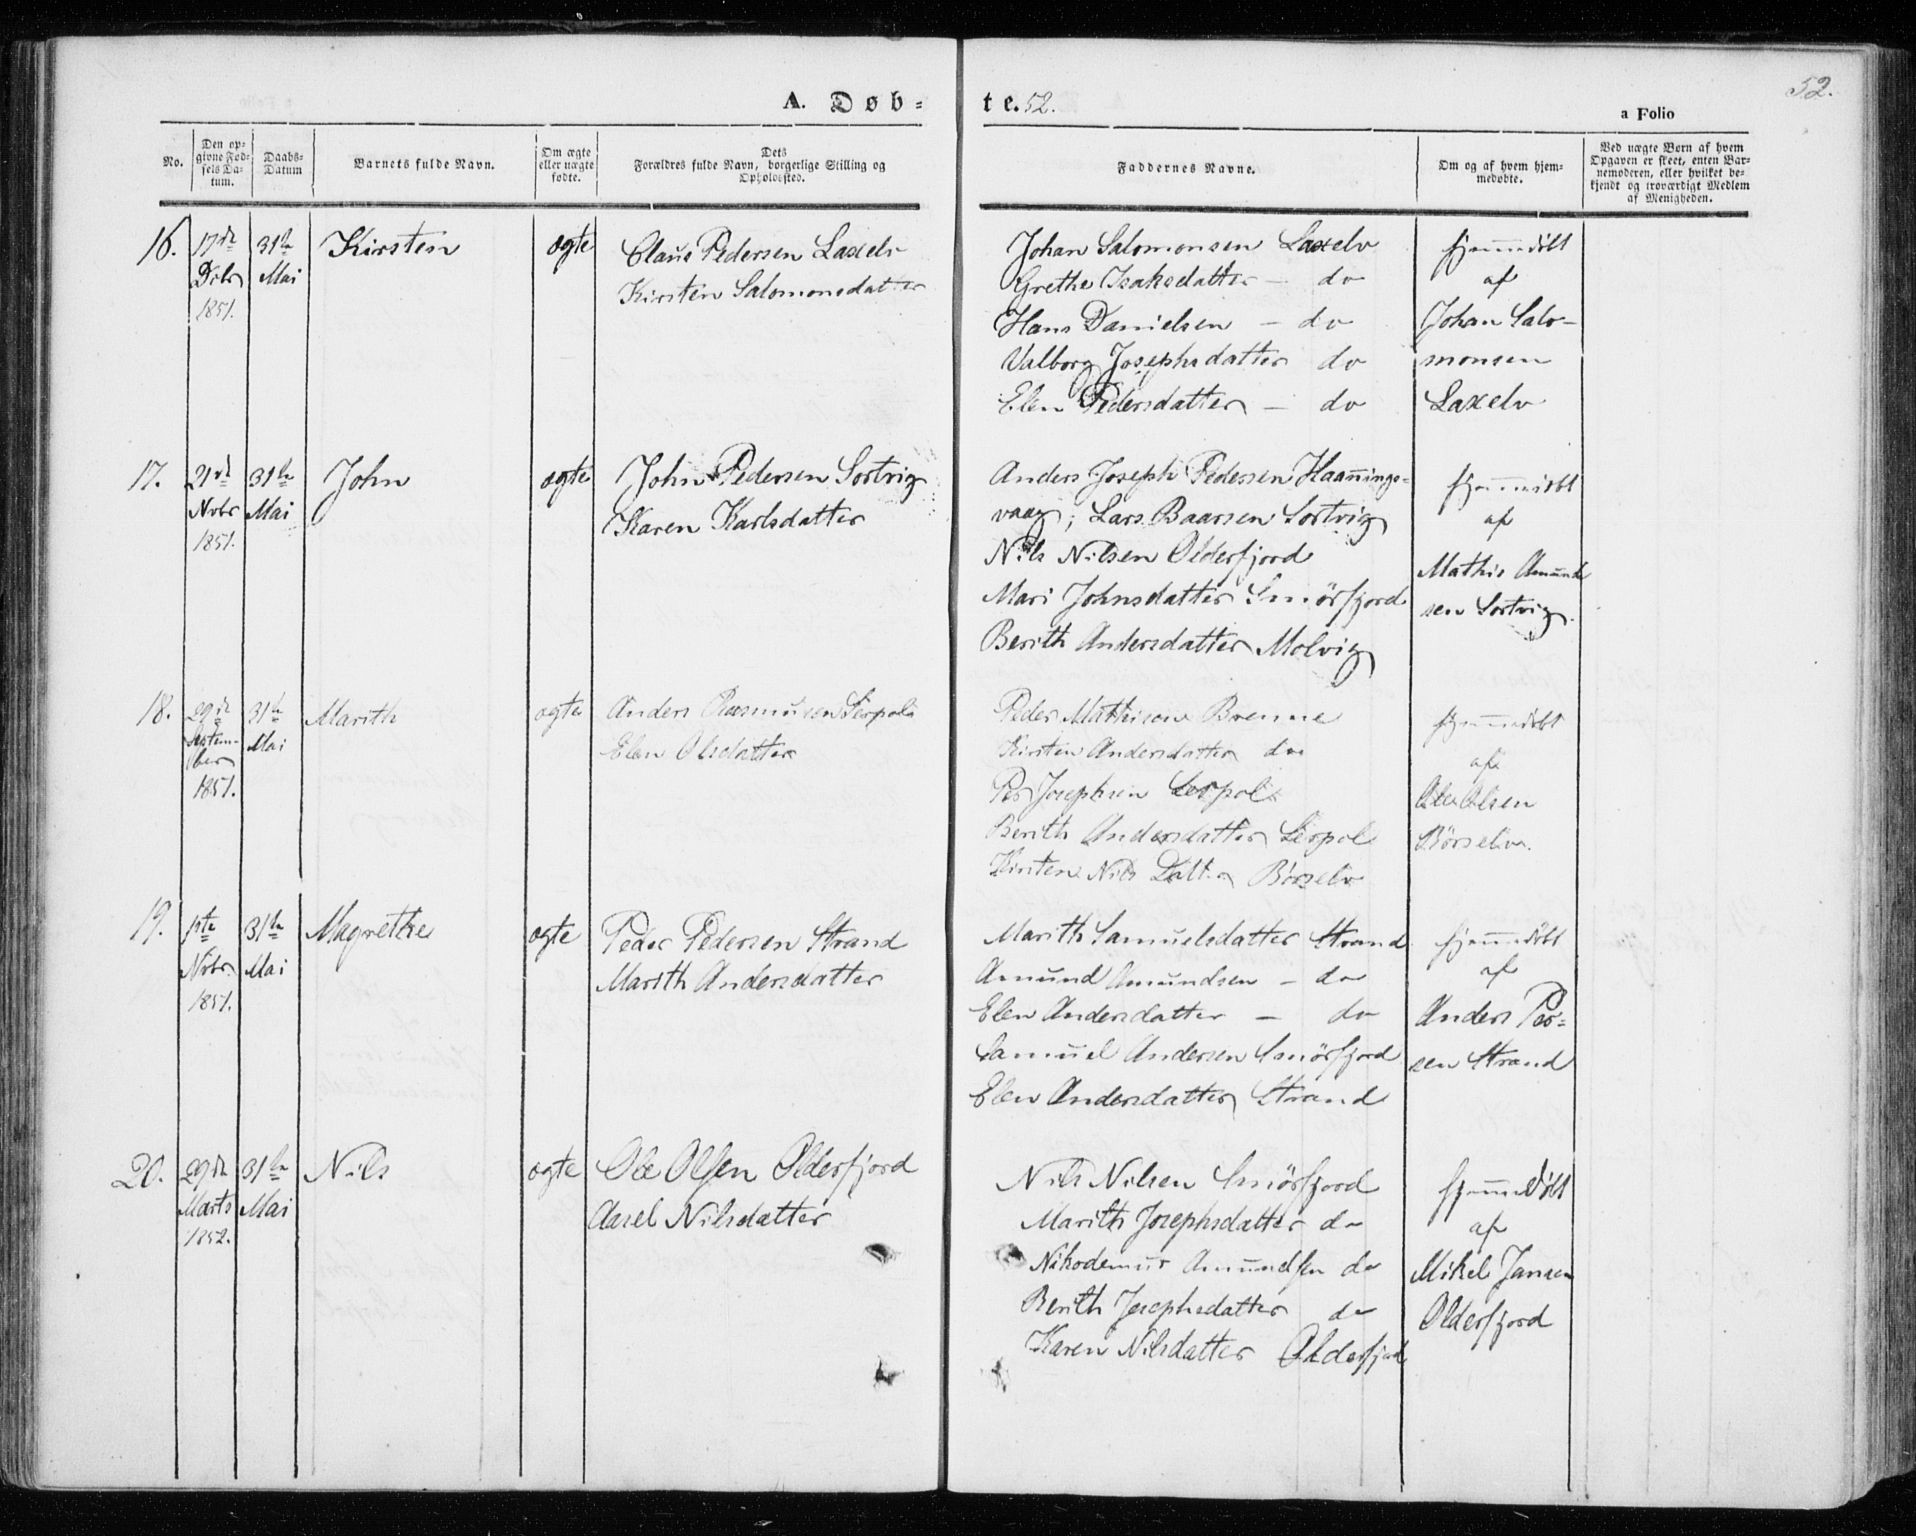 52.
A. Døb-
te. 52.
a Folio
No.
Den op-
givne Fød-
sels Da-
tum.
Daabs-
Datum
Barnets fulde Navn.
Om ægte
eller uægte
fødte.
Dets
Forældres fulde Navn, borgerlige Stilling og
Opholdssted.
Faddernes Navne.
Om og af hvem hjem-
medøbte.
Ved uægte Børn af hvem
Opgaven er skeet, enten Bar-
nemoderen, eller hvilket be-
kjendt og troværdigt Medlem
af Menigheden.
16.
17de
Dcbr
1851.
31te
Mai
Kirsten
ægte
Claus Pedersen Laxelv
Kirsten Salomonsdatter
Johan Salomonsen Laxelv
Grethe Isaksdatter — do
Hans Danielsen — do
Valborg Josephsdatter do
Elen Pedersdatter — do
hjemmedöbt
af
Johan Salo-
monsen
Laxelv
17.
21de
Nvbr
1851.
31te
Mai
John
ægte
John Pedersen Sortvig
Karen Karlsdatter
Anders Joseph Pedersen Haanings-
vaag; Lars Baarsen Sortvig
Nils Nilsen Olderfjord
Mari Johnsdatter Smörfjord
Berith Andersdatter Molvig
hjemmedöbt
af
Mathis Amund
sen Sortvig.
18.
29de
Septem-
ber
1851.
31te
Mai
Marith
ægte
Anders Rasmusen Lexpol
Elen Olsdatter
Peder Mathisen Brenne
Kirsten Andersdatter do
Per Josephsen Lexpol
Berith Andersdatter Lexpol
Kirsten Nils Datter Börselv
hjemmedöbt
af
Ole Olsen
Börselv.
19.
1ste
Nvbr.
1851.
31te
Mai
Magrethe
ægte
Peder Pedersen Strand
Marith Andersdatter
Marith Samuelsdatter Strand
Amund Amundsen — do
Elen Andersdatter — do
Samuel Andersen Smörfjord
Elen Andersdatter Strand
hjemmedöbt
af
Anders Per-
sen Strand
20.
29de
Marts
1852.
31te
Mai
Nils
ægte
Ole Olsen Olderfjord
Aasel Nilsdatter
Nils Nilsen Smörfjord
Marith Josephsdatter do
Nikodemus Amundsen do
Berith Josephsdatter do
Karen Nilsdatter Olderfjord
hjemmedöbt
af
Mikel Jansen
Olderfjord